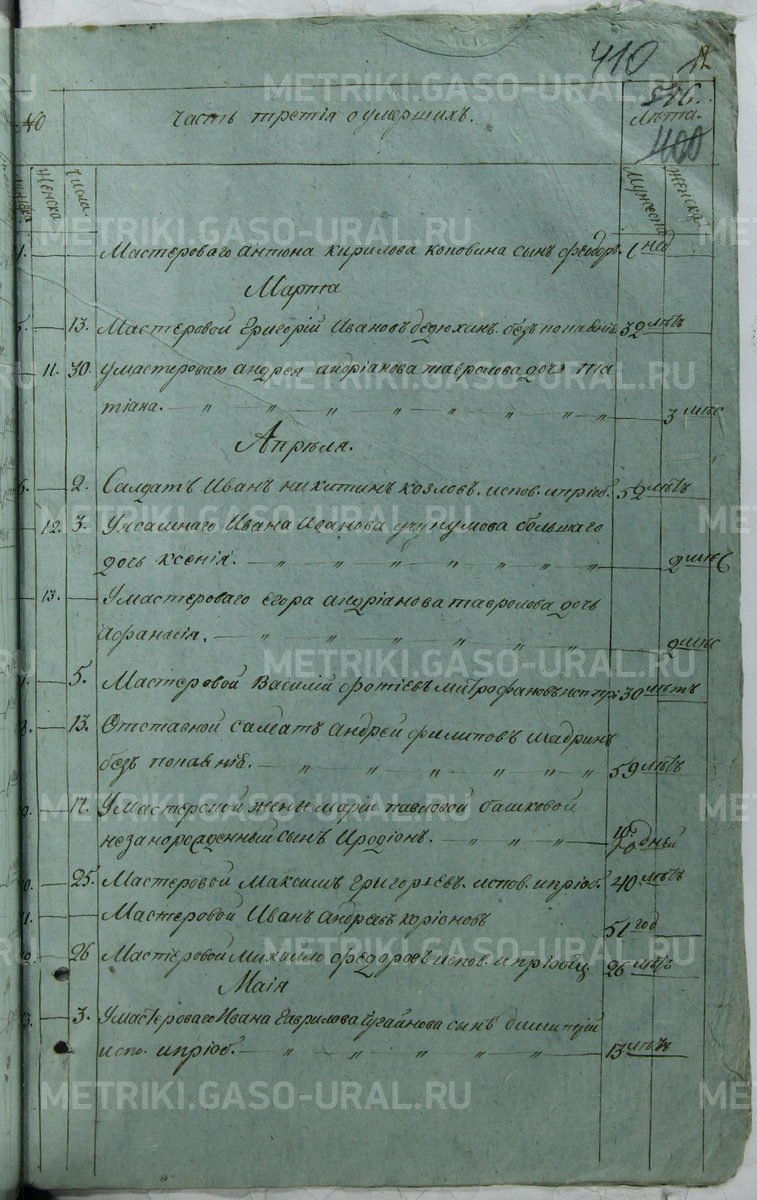 410 12
576.
№ Часть третія о умершихъ. Лѣта.
400
Женска Числа. Мужеска Женска
Мастероваго антона кирилова коповина сынъ феодоръ. 1 нед
Марта
13. Мастеровой Григорій Ивановъ бедюхинъ. безъ покаянія 32 лѣтъ
11. 30. умастероваго андрея андріанова тавролова дочь та
тіана. — „ „ „ „ „ „ „ 3 мѣс
Апрѣля.
6. 2. Салдатъ Иванъ никитинъ козловъ. испов. ипріоб. 52 лѣтъ
12. 3. Ивана Иванова большаго
дочь ксенія. — „ „ „ „ „ „ 2 мѣс
13. — Умастероваго егора андріанова тавролова дочь
Афанасія. — „ „ „ „ „ „ 2 мѣс
5. Мастеровой Василій фотіевъ митрофановъ исп. прі 30 лѣтъ
13. Отставной салдатъ андрей филиповъ шадринъ
безъ покаянія. — „ „ „ „ „ 59 лѣтъ
17. Умастерской жены маріи павловой башковой
незаконорожденный сынъ Иродіонъ. — „ „ „ 10. дней
25. Мастеровой Максимъ Григорьевъ. испов. ипріоб. 40. лѣтъ
— Мастеровой Иванъ Андреевъ 51 год
26 Мастеровой михаило федоровъ испов. ипріобщ. 26 лѣтъ
Маія
3. Умастероваго Ивана гаврилова сынъ димитрій
испо. ипріоб. — „ „ „ „ „ 13 лѣтъ
METRIKI.GASO-URAL.RU